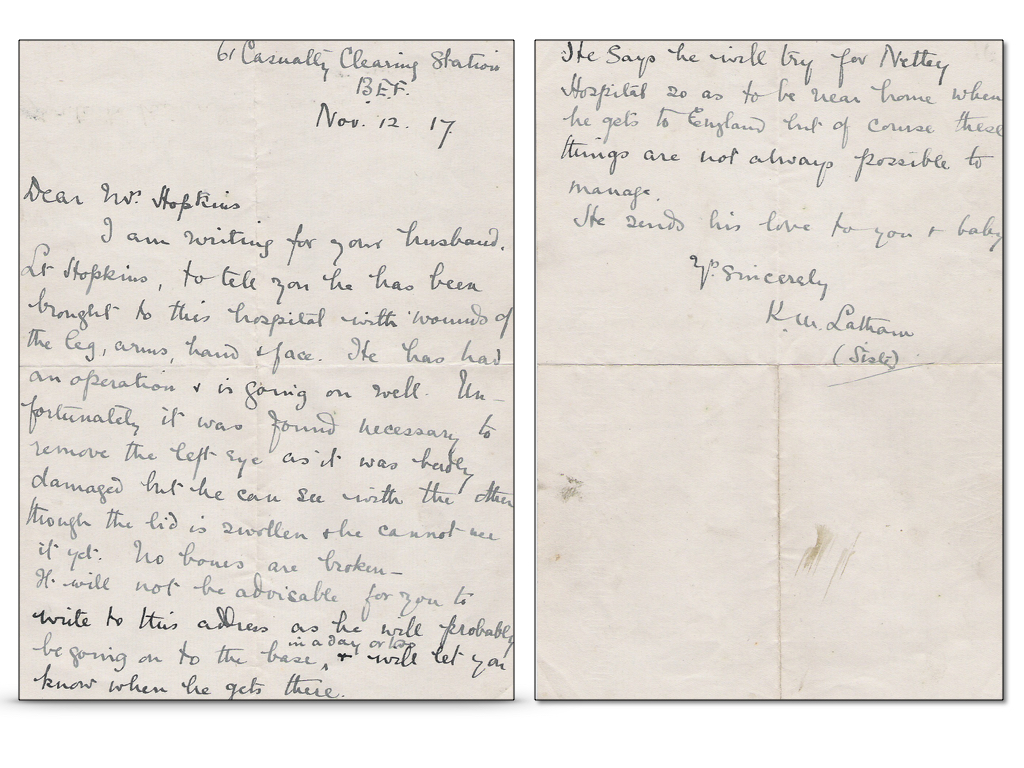 61 Casualty Clearing Station
B.E.F.
Nov. 12. 17
Dear Mrs Hopkins
I am writing for your husband,
Lt Hopkins, to tell you he has been
brought to this hospital with wounds of
the leg, arms, hand & face. He has had
an operation & is going on well. Un-
fortunately it was found necessary to
remove the left eye as it was badly
damaged but he can see with the other
though the lid is swollen & he cannot use
it yet. No bones are broken –
It will not be advisable for you to
write to this address as he will probably
be going on to the base, in a day or two & will let you
know when he gets there.
He says he will try for Netley
Hospital so as to be near home when
he gets to England but of course these
things are not always possible to
manage.
He sends his love to you & baby
Yrs sincerely
K. M. Latham
(Sister)